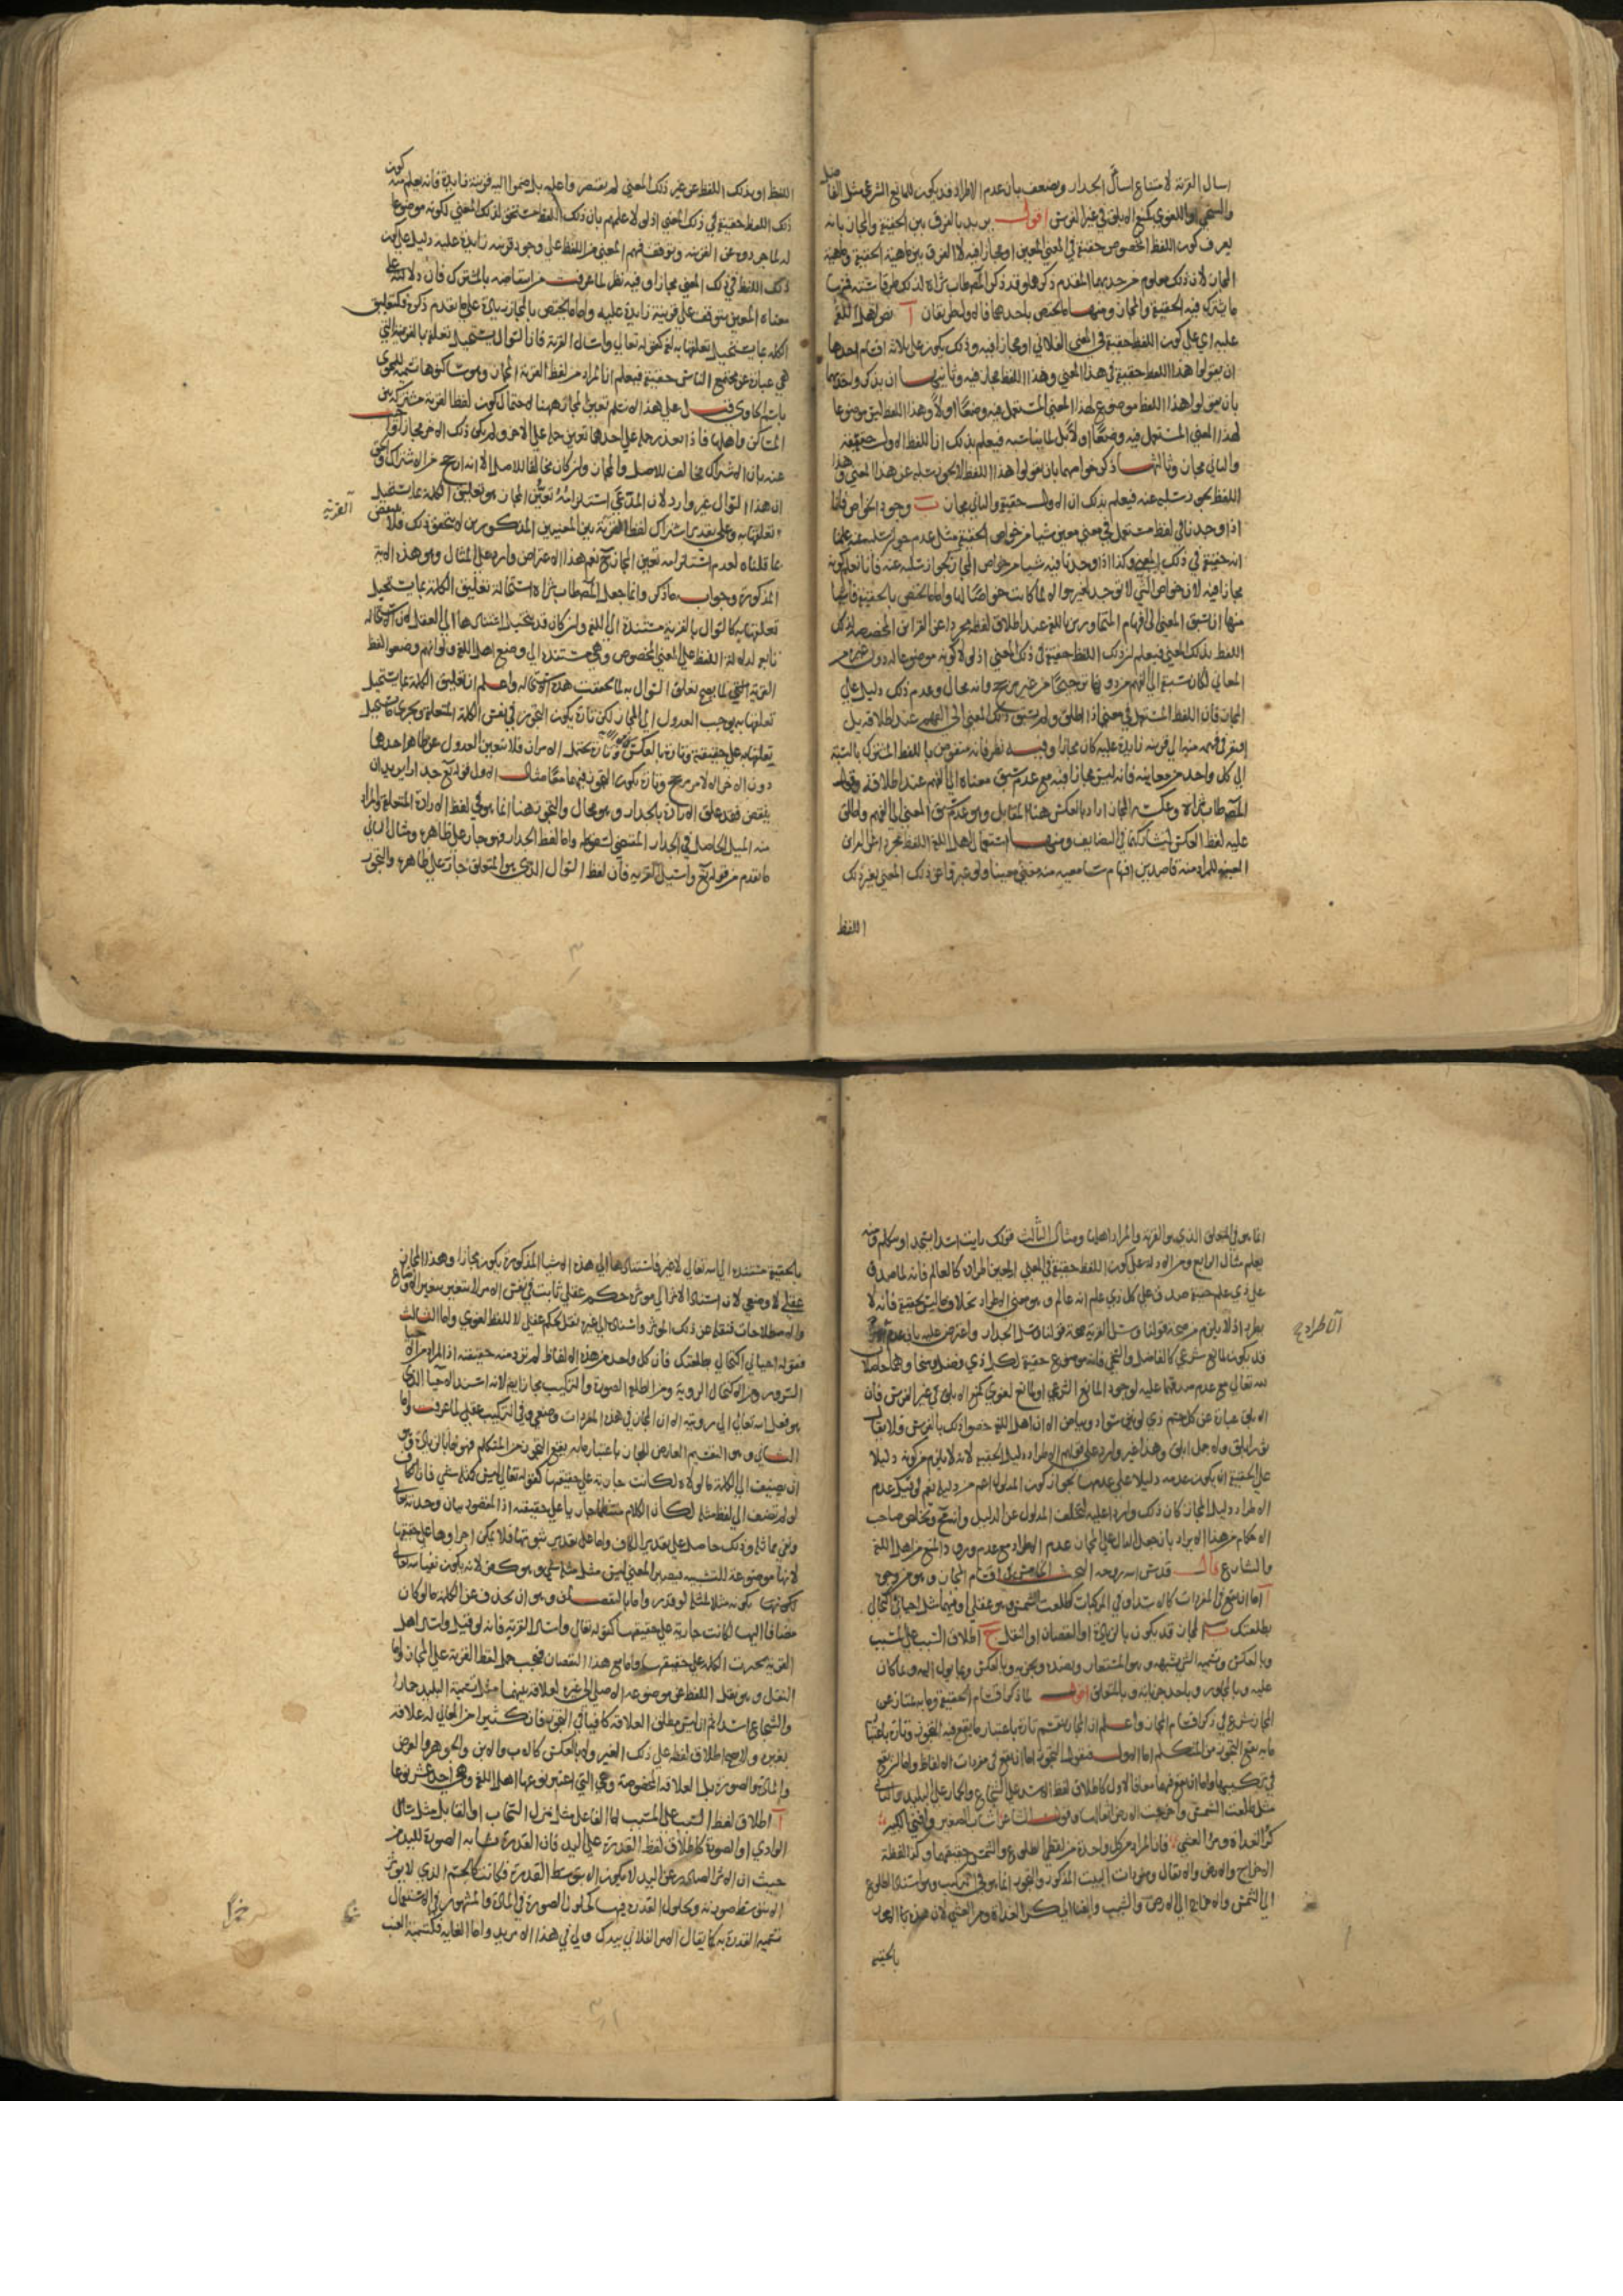 اسال القرية لامتناع اسأل الجدار ويضعف بان عدم الاطراد قد يكون للمانع الشرعي مثل الفاضل
والسخي او اللغوي كمنع الابلق في غير الفرس اقول يريد بالفرق بين الحقيقة والمجاز بانه
يعرف كون اللفظ المخصوص حقيقة في المعنى المعين او مجازا فيه لا الفرق بين ماهية الحقيقة وماهية
المجاز لان ذلك معلوم من حديهما المتقدم ذكرهما وقد ذكر المصطاب ثراه لذلك طرقا ستة فمنها
ما يشترك فيه الحقيقة والمجاز ومنها ما يختص باحدهما فالاول طريقان آ نص اهل اللغة
عليه اي على كون اللفظ حقيقة في المعنى الفلاني او مجازا فيه وذلك يكون على ثلاثة اقسام احدها
ان يقولوا هذا اللفظ حقيقة في هذا المعنى وهذا اللفظ مجاز فيه وثانيها ان يذكروا حديهما
بان يقولوا هذا اللفظ موضوع لهذا المعنى المستعمل فيه وضعا اولا وهذا اللفظ ليس موضوعا
لهذا المعنى المستعمل فيه وضعا اولا بل لمناسبة فيعلم بذلك ان اللفظ الاول حقيقة
والثاني مجاز وثالثها ذكر خواصهما بان يقولوا هذا اللفظ لا يجوز سلبه عن هذا المعنى وهذا
اللفظ يجوز سلبه عنه فيعلم بذلك ان الاول حقيقة والثاني مجاز ب وجود الخواص فانا
اذا وجدنا في لفظ مستعمل في معنى معين شيئا من خواص الحقيقة مثل عدم جواز سلبه عنه علمنا
انه حقيقة في ذلك المعنى وكذا اذا وجدنا فيه شيئا من خواص المجاز كجواز سلبه عنه فانا نعلم كونه
مجازا فيه لان خواص الشيء لا توجد لغيره والا لما كانت خواصا لها واما ما يختص بالحقيقة فاثنان
منها ان يسبق المعنى الى افهام المتحاورين باللغة عند اطلاق لفظه مجردا عن القرائن المخصصة لذلك
اللفظ بذلك المعنى فيعلم ان ذلك اللفظ حقيقة في ذلك المعنى اذ لولا كونه موضوعا له دون غيره من
المعاني لكان نسبته الى الفهم من دونها ترجيحا من غير مرجح وانه محال وعدم ذلك دليل على
المجاز فان اللفظ المستعمل في معنى اذا اطلق ولم يسبق ذلك المعنى الى الفهم عند اطلاقه بل
افتقر في فهمه منه الى قرينة زايدة عليه كان مجازا وفيه نظر فانه منقوض باللفظ المشترك بالنسبة
الى كل واحد من معانيه فانه ليس مجازا فيه مع عدم سبق معناه الى الفهم عند اطلاقه وقول
المصطاب ثراه وعكسه المجاز اراد بالعكس هنا المقابل وهو عدم سبق المعنى الى الفهم واطلق
عليه لفظ العكس لتشاركهما في المضايف ومنها استعمال اهل اللغة اللفظ مجردا عن القرائن
المعينة للمراد منه قاصدين افهام سامعيه منه معنى معينا ولو عبر واعن ذلك المعنى بغير ذلك
اللفظ
اللفظ او بذلك اللفظ عن غير ذلك المعنى لم يقتصروا عليه بل ضموا اليه قرينة زايدة فانه يعلم منه كون
ذلك اللفظ حقيقة في ذلك المعنى اذ لولا علمهم بان ذلك اللفظ مستحق لذلك المعنى لكونه موضوعا
له لما جردوه عن القرينة وتوقف فهم المعنى من اللفظ على وجود قرينة زايدة عليه دليل على كون
ذلك اللفظ في ذلك المعنى مجازا وفيه نظر لما عرفت من انتقاضه بالمشترك فان دلالته على
معناه المعين يتوقف على قرينة زايدة عليه واما ما يختص بالمجاز زيادة على ما تقدم ذكره فكتعليق
الكلمة بما يستحيل تعلقها به لغة كقوله تعالى واسال القرية فان السؤال يستحيل تعلقه بالقرية التي
هي عبارة عن مجامع الناس حقيقة فيعلم ان المراد من لفظ القرية المجاز وهو ساكنوها تسمية للحوي
باسم الحاوي قيل على هذا لا نسلم تعين المجاز ههنا لاحتمال كون لفظ القرية مشتركة بين
المساكن واهلها فاذا تعذر حمله على احدها تعين حمله على الاخر ولم يكن ذلك الاخر مجازا واجيب
عنه بان الاشتراك مخالف للاصل والمجاز وان كان مخالفا للاصل الا انه ارجح من الاشتراك والحق
ان هذا السؤال غير وارد لان المدعى استلزامه تعين المجاز هو تعليق الكلمة بما يستحيل
تعلقها به وعلى تقدير اشتراك لفظ القرية بين المعنيين المذكورين لا يتحقق ذلك فلا ينقض
آ القرية
ما قلناه لعدم استلزامه تعين المجاز ح نعم هذا الاعتراض وارد على المثال وهو هذه الاية
المذكورة وجوابه ما ذكر وانما جعل المصطاب ثراه استحالة تعليق الكلمة بما يستحيل
تعلقها به كالسؤال بالقرية مستندة الى اللغة وان كان قد يتخيل استنادها الى العقل لان الاستحالة
تابع لدلالة اللفظ على المعنى المخصوص وهي مستندة الى وضع اهل اللغة ولو انهم وضعوا لفظ
القرية لما يصح تعلق السؤال به لما تحققت هذه الاستحالة واعلم ان تعليق الكلمة بما يستحيل
تعلقها به يوجب العدول الى المجاز لكن تارة يكون التجوز في نفس الكلمة المتعلقة ويجري ما يستحيل
تعلقها به على حقيقته وتارة بالعكس وتارة يحتمل الامران فلا يتعين العدول عن ظاهر احدها
دون الاخر الا لامر مرجح وتارة يكون التجوز فيهما معا مثال الاول قوله تع جدارا يريد ان
ينقض فقد علق الارادة بالجدار وهو محال والتجوز هنا انما هو في لفظ الارادة المتعلقة والمراد
منه الميل الحاصل في الجدار المقتضي لسقوطه واما لفظ الجدار فهو جار على ظاهره ومثال الثاني
ما تقدم من قوله تع واسئل القرية فان لفظ السؤال الذي هو المتعلق جار على ظاهره والتجوز
انما هو في المتعلق الذي هو القرية والمراد اهلها ومثال الثالث قولك رايت اسدا يتجد او يتكلم ومنه
يعلم مثال الرابع ومن الادلة على كون اللفظ حقيقة في المعنى المعين اطراده كالعالم فانه لما صدق
على ذي علم حقيقة صدق على كل ذي علم انه عالم وهو معنى الاطراد بخلاف ما ليس بحقيقة فانه لا
يطرد اذ لا يلزم من صحة قولنا وسئل القرية صحة قولنا وسئل الجدار واعترض عليه بان عدم
آ الاطراد ح
قد يكون لمانع شرعي كالفاضل والسخي فانه موضوع حقيقة لكل ذي فضل وسخا وهما حاصلان
لله تعالى مع عدم صدقهما عليه لوجود المانع الشرعي او لمانع لغوي كمنع الابلق في غير الفرس فان
الابلق عبارة عن كل جسم ذي لونين سواد وبياض الا ان اهل اللغة خصوا ذلك بالفرس فلا يقال
ثور ابلق ولا جمل ابلق وهذا غير وارد على قولهم الاطراد دليل الحقيقة لانه لا يلزم من كونه دليلا
على الحقيقة ان يكون عدمه دليلا على عدمها لجواز كون المدلول اعم من دليله نعم لو قيل عدم
الاطراد دليل المجاز كان ذلك واردا عليه لتخلف المدلول عن الدليل وانتج وتخلص صاحب
الاحكام من هذا الايراد بان جعل الدال على المجاز عدم الاطراد مع عدم ورود المنع من اهل اللغة
والشارع قال قدس الله روحه البحث الخامس في اقسام المجاز وهو من وجوه
آ اما ان يقع في المفردات كالاسد او في المركبات كطلعت الشمس وهو عقلي او فيهما مثل احياني اكتحالي
بطلعتك ب المجاز قد يكون بالزيادة او النقصان او النقل ج اطلاق السبب على المسبب
وبالعكس وتسمية الشيء بشبهه وهو المستعار وبضده وبجزئه وبالعكس وبما يؤل اليه وبما كان
عليه وبالمجاور وباحد جزئيه وبالمتعلق اقول لما ذكر اقسام الحقيقة وما به يمتاز عن
المجاز شرع في ذكر اقسام المجاز واعلم ان المجاز ينقسم تارة باعتبار ما يقع فيه التجوز وتارة باعتبار
ما به يقع التجوز من المتكلم اما الاول فنقول التجوز اما ان يقع في مفردات الالفاظ واما ان يقع
في تركيبها واما ان يقع فيهما معا فالاول كاطلاق لفظ الاسد على الشجاع والحمار على البليد والثاني
مثل طلعت الشمس واخرجت الارض اثقالها وقول الشاعر اشاب الصغير وافنى الكبير
كر الغداة ومر العشي فان المراد من كل واحدة من لفظي الطلوع والشمس حقيقتهما وكذا لفظة
الاخراج والارض والاثقال ومفردات البيت المذكور والتجوز انما هو في التركيب وهو استناد الطلوع
الى الشمس والاخراج الى الارض والشيب والافنا الى كر الغداة ومر العشي لان هذه الافعال
بالحقيقة
بالحقيقة مستندة الى الله تعالى لا غير فاستنادها الى هذه الاشياء المذكورة يكون مجازا وهذا المجاز
عقلي لا وضعي لان استناد الاثر الى مؤثره حكم عقلي ثابت في نفس الامر لا يتغير بتغير الاوضاع
والاصطلاحات فنقله عن ذلك المؤثر واسناده الى غيره نقل لحكم عقلي لا للفظ لغوي واما الثالث
فقوله احياني اكتحالي بطلعتك فان كل واحد من هذه الالفاظ لم يرد منه حقيقته اذ المراد من الاحيا
السرور ومن الاكتحال الروية ومن الطلعة الصورة والتركيب مجاز ايضا لانه اسند الاحيا الذي
هو فعل الله تعالى الى رويته الا ان المجاز في هذه المفردات وضعي وفي التركيب عقلي لما عرفت واما
الثاني وهو التقسيم العارض للمجاز باعتبار ما به يقع التجوز من المتكلم فهو اما بالزيادة وهو
ان يضيف الى الكلمة ما لولاه لكانت جارية على حقيقتها كقوله تعالى ليس كمثله شيء فان الكاف
لو لم تضف الى لفظ مثله لكان الكلام منتظما جاريا على حقيقته اذ المقصود بيان وحدته تعالى
ونفي مماثله وذلك حاصل على تقدير عدم الكاف واما على تقدير ثبوتها فلا يمكن اجراوها على حقيقتها
لانها موضوعة للتشبيه فيصير المعنى ليس مثل مثله شيء وهو كفر لانه يكون نفيا له تعالى
لكونه مثلا لمثله لو قدر واما بالنقصان وهو ان يحذف عن الكلمة ما لو كان
مضافا اليها لكانت جارية على حقيقتها كقوله تعالى واسال القرية فانه لو قيل واسال اهل
القرية لجرت الكلمة على حقيقتها واما مع هذا النقصان فيجب حمل لفظ القرية على المجاز واما
النقل وهو نقل اللفظ عن موضوعه الاصلي الى غيره لعلاقة بينهما مثل تسمية البليد حمارا
والشجاع اسدا ثم انه ليس مطلق العلاقة كافيا في التجوز فان كثيرا من المحال له علاقة
بغيره ولا يصح اطلاق لفظه على ذلك الغير ولا بالعكس كالاب والابن والجوهر والعرض
والمادة والصورة بل العلاقة المخصوصة وهي التي اعتبر نوعها اهل اللغة وهي احد عشر نوعا
آ اطلاق لفظ السبب على المسبب اما الفاعل مثل نزل السحاب او القابل مثل سال
الوادي او الصورة كاطلاق لفظ القدرة على اليد فان القدرة مشابه الصورة لليد من
حيث ان الاثر الصادر عن اليد لا يكون الا بتوسط القدرة فكانت كالجسم الذي لا يؤثر
الا بتوسط صورته وبحلول القدرة فيها كحلول الصورة في المادة والمشهور في الاستعمال
تسمية القدرة يدا كما يقال الامر الفلاني بيدك ولي في هذا الامر يد واما الغاية فكتسمية العنب